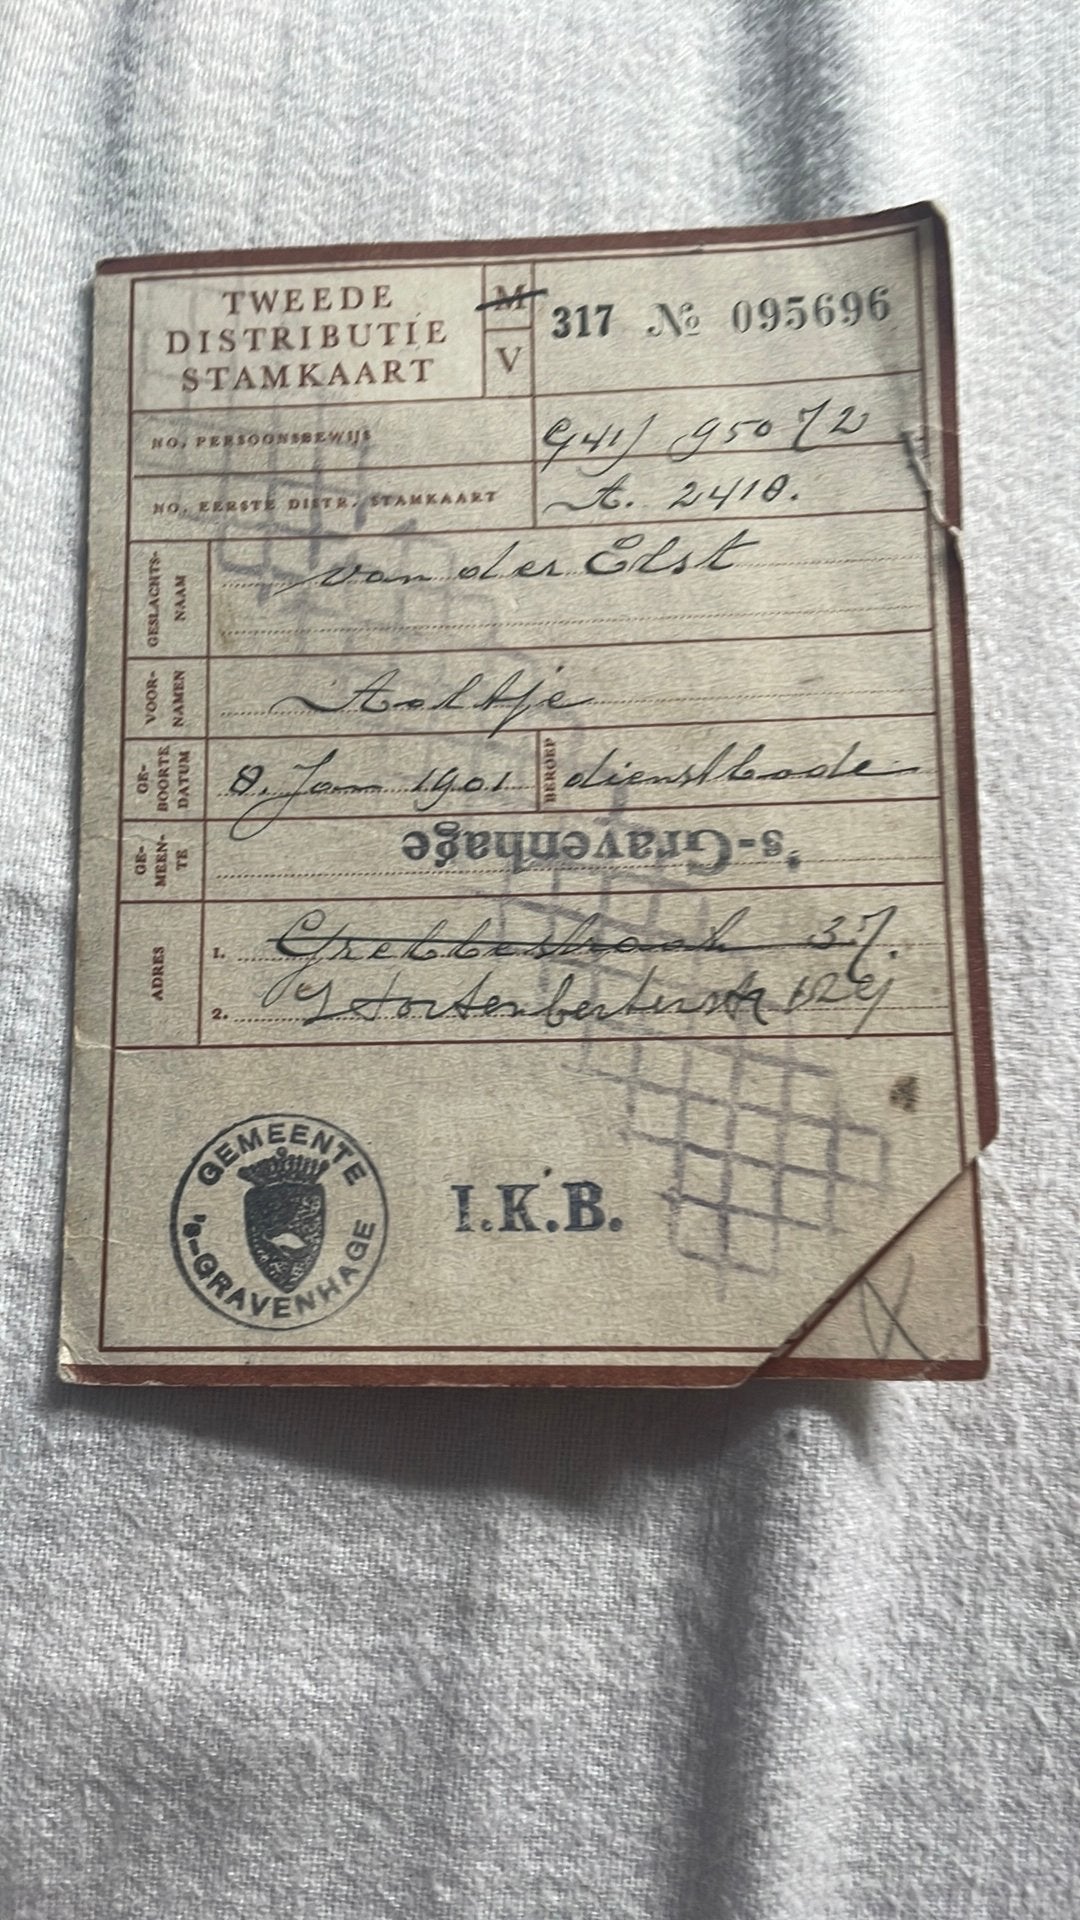 TWEEDE
DISTRIBUTIE
STAMKAART
M
V
317 № 095696
NO. PERSOONSBEWIJS
G41) 95072
NO. EERSTE DISTR. STAMKAART
A. 2418.
GESLACHTS-
NAAM
van der Elst
VOOR-
NAMEN
Aaltje
GE-
BOORTE
DATUM
8. Jan 1901
BEROEP
dienstbode
GE-
MEEN-
TE
's-Gravenhage
ADRES
1. 37.
2.
GEMEENTE
's-GRAVENHAGE
I.K.B.